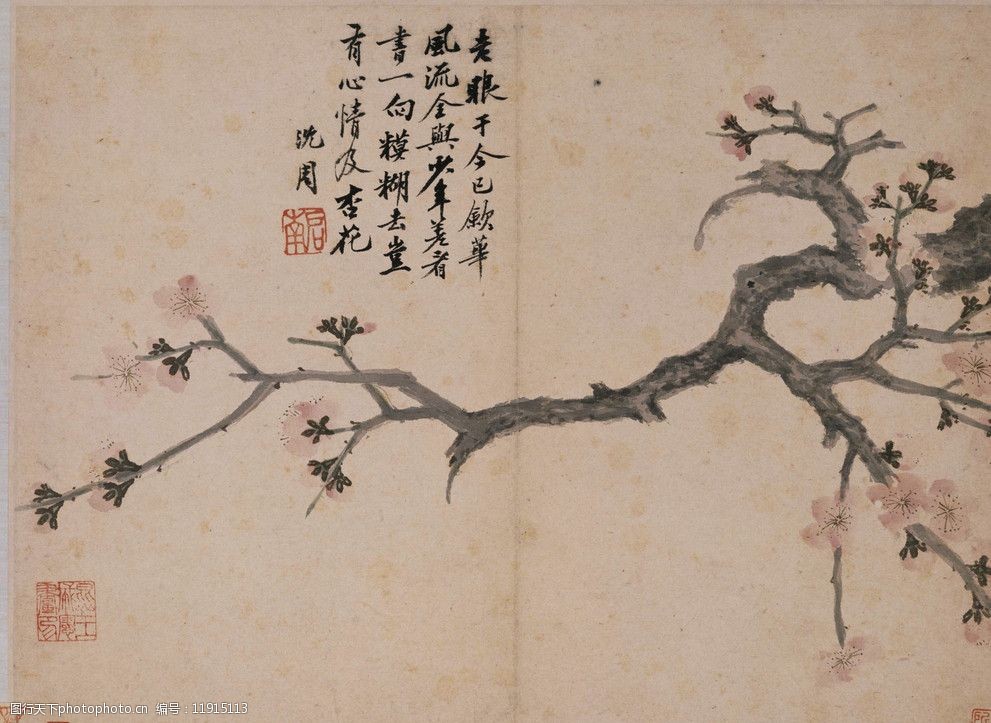 老眼于今已歛華
風流全與少年差看
書一向糢糊去豈
有心情及杏花
沈周
啟南
图行天下photophoto.cn 编号：11915113